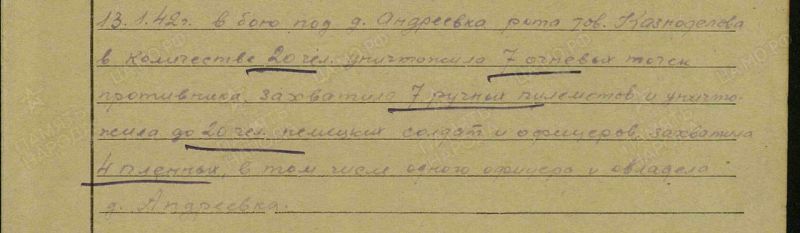 13.1.42г. в бою под д. Андреевка рота тов. Казноделова
в количестве 20 чел. уничтожила 7 огневых точек
противника, захватила 7 ручных пулеметов и уничто-
жила до 20 чел. немецких солдат и офицеров, захватила
4 пленных, в том числе одного офицера и овладела
д. Андреевка.